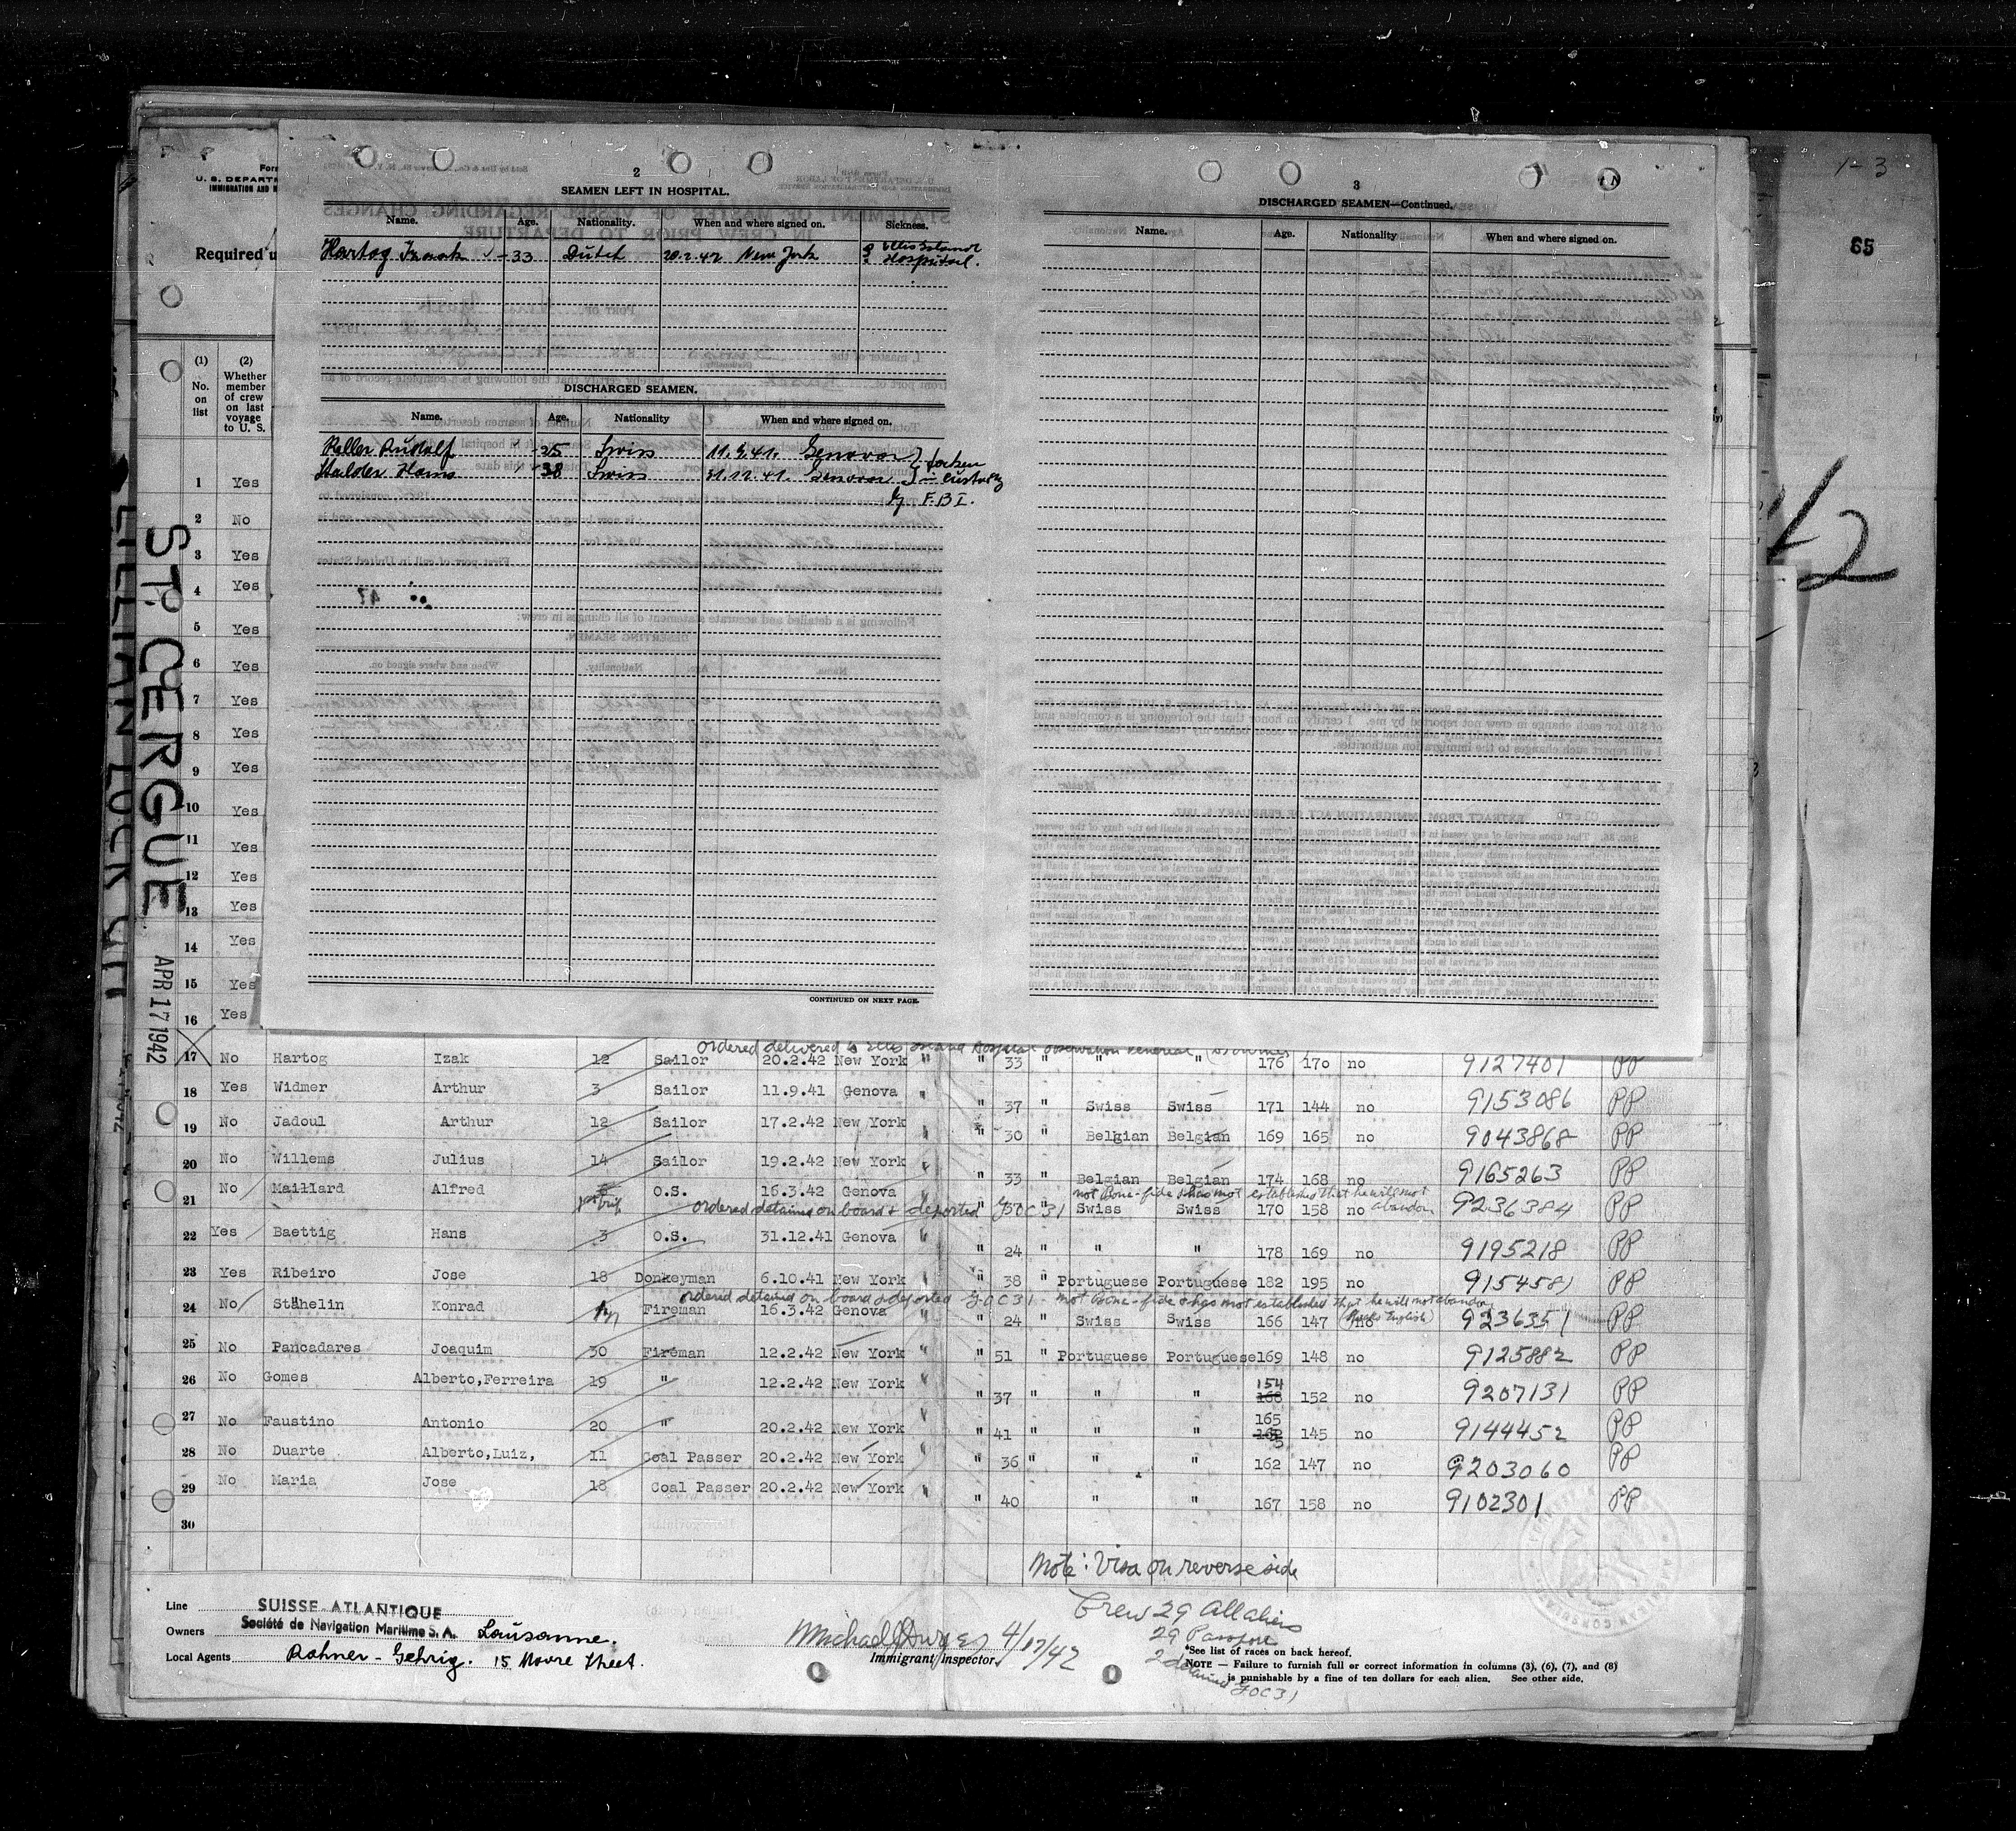 1-3
65
12
ST. CERGUE
APR 17 1942
Form
U. S. DEPARTM
IMMIGRATION AND N
Required u
2
SEAMEN LEFT IN HOSPITAL.
Name. Age. Nationality. When and where signed on. Sickness.
Hartog Izaak 33 Dutch 20.2.42 New York Ellis Island
Hospital.
DISCHARGED SEAMEN.
Name. Age. Nationality When and where signed on.
Keller Rudolf 25 Swiss 11.9.41. Genova } taken
Stalder Hans 38 Swiss 31.12.41. Genova } in custody
by F.B.I.
CONTINUED ON NEXT PAGE.
3
DISCHARGED SEAMEN—Continued.
Name. Age. Nationality When and where signed on.
(1) (2)
No. on list
Whether member of crew on last voyage to U. S.
1 Yes
2 No
3 Yes
4 Yes
5 Yes
6 Yes
7 Yes
8 Yes
9 Yes
10 Yes
11 Yes
12 Yes
13 Yes
14 Yes
15 Yes
16 Yes
ordered delivered to Ellis Island Hospital observation
17 No Hartog Izak 12 Sailor 20.2.42 New York " " 33 " " " 176 170 no 9127401 PP
18 Yes Widmer Arthur 3 Sailor 11.9.41 Genova " " 37 " Swiss Swiss 171 144 no 9153086 PP
19 No Jadoul Arthur 12 Sailor 17.2.42 New York " " 30 " Belgian Belgian 169 165 no 9043868 PP
20 No Willems Julius 14 Sailor 19.2.42 New York " " 33 Belgian Belgian 174 168 no 9165263 PP
not Bona-fide & has not established that he will not abandon
21 No Maillard Alfred O.S. 16.3.42 Genova " 30 Swiss Swiss 170 158 no 9236384 PP
ordered detained on board & deported FOC31
22 Yes Baettig Hans 3 O.S. 31.12.41 Genova " " 24 " " " 178 169 no 9195218 PP
23 Yes Ribeiro Jose 18 Donkeyman 6.10.41 New York " " 38 " Portuguese Portuguese 182 195 no 9154581 PP
ordered detained on board & deported FOC31 - not Bona-fide & has not established that he will not abandon
24 No Stähelin Konrad Fireman 16.3.42 Genova " " 24 " Swiss Swiss 166 147 no (Speaks English) 9236351 PP
25 No Pancadares Joaquim 30 Fireman 12.2.42 New York " " 51 " Portuguese Portuguese 169 148 no 9125882 PP
26 No Gomes Alberto,Ferreira 19 " 12.2.42 New York " 37 " " " 154 152 no 9207131 PP
27 No Faustino Antonio 20 " 20.2.42 New York " " 41 " " " 165 145 no 9144452 PP
28 No Duarte Alberto,Luiz, 11 Coal Passer 20.2.42 New York " " 36 " " " 162 147 no 9203060 PP
29 No Maria Jose 18 Coal Passer 20.2.42 New York " " 40 " " 167 158 no 9102301 PP
30
Note: Visa on reverse side
Crew 29 All aliens
29 Passport
2 detained FOC31
Line SUISSE-ATLANTIQUE
Owners Société de Navigation Maritime S. A. Lausanne.
Local Agents Rohner - Gehrig. 15 Moore Street.
4/17/42
Immigrant Inspector.
*See list of races on back hereof.
NOTE — Failure to furnish full or correct information in columns (3), (6), (7), and (8)
is punishable by a fine of ten dollars for each alien. See other side.